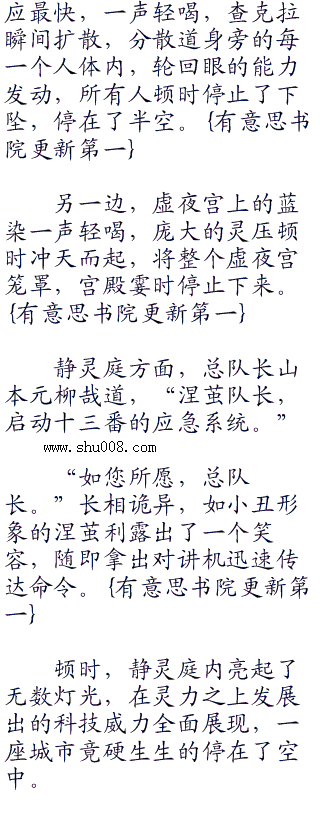 应最快，一声轻喝，查克拉
瞬间扩散，分散道身旁的每
一个人体内，轮回眼的能力
发动，所有人顿时停止了下
坠，停在了半空。{有意思书
院更新第一}
另一边，虚夜宫上的蓝
染一声轻喝，庞大的灵压顿
时冲天而起，将整个虚夜宫
笼罩，宫殿霎时停止下来。
{有意思书院更新第一}
静灵庭方面，总队长山
本元柳哉道，“涅茧队长，
启动十三番的应急系统。”
www.shu008.com
“如您所愿，总队
长。”长相诡异，如小丑形
象的涅茧利露出了一个笑
容，随即拿出对讲机迅速传
达命令。{有意思书院更新第
一}
顿时，静灵庭内亮起了
无数灯光，在灵力之上发展
出的科技威力全面展现，一
座城市竟硬生生的停在了空
中。